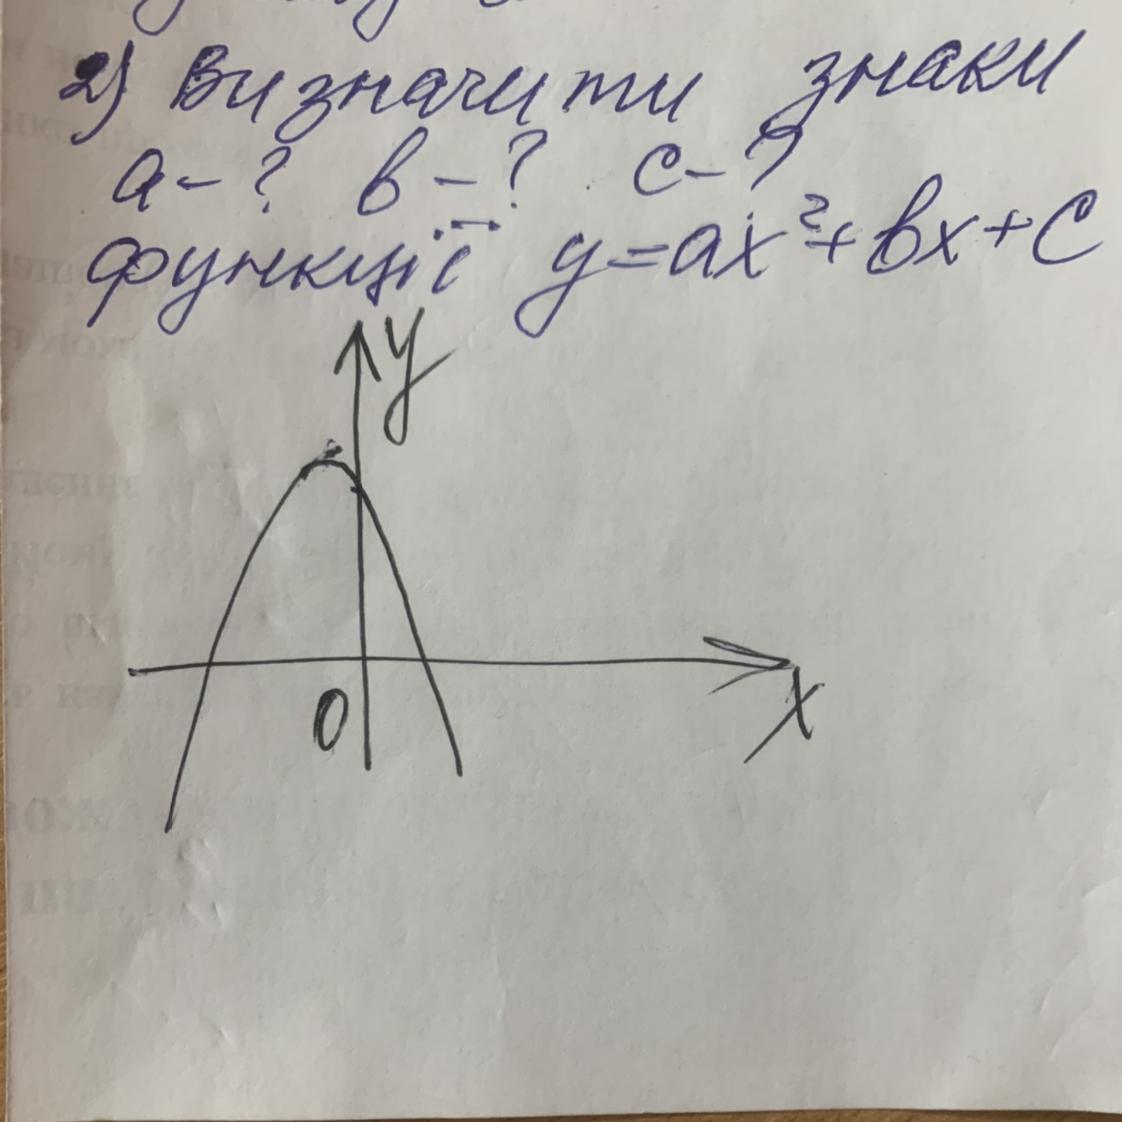 2) Визначити знаки
a-? b-? c-?
функції y=ax²+bx+c
y
0
x